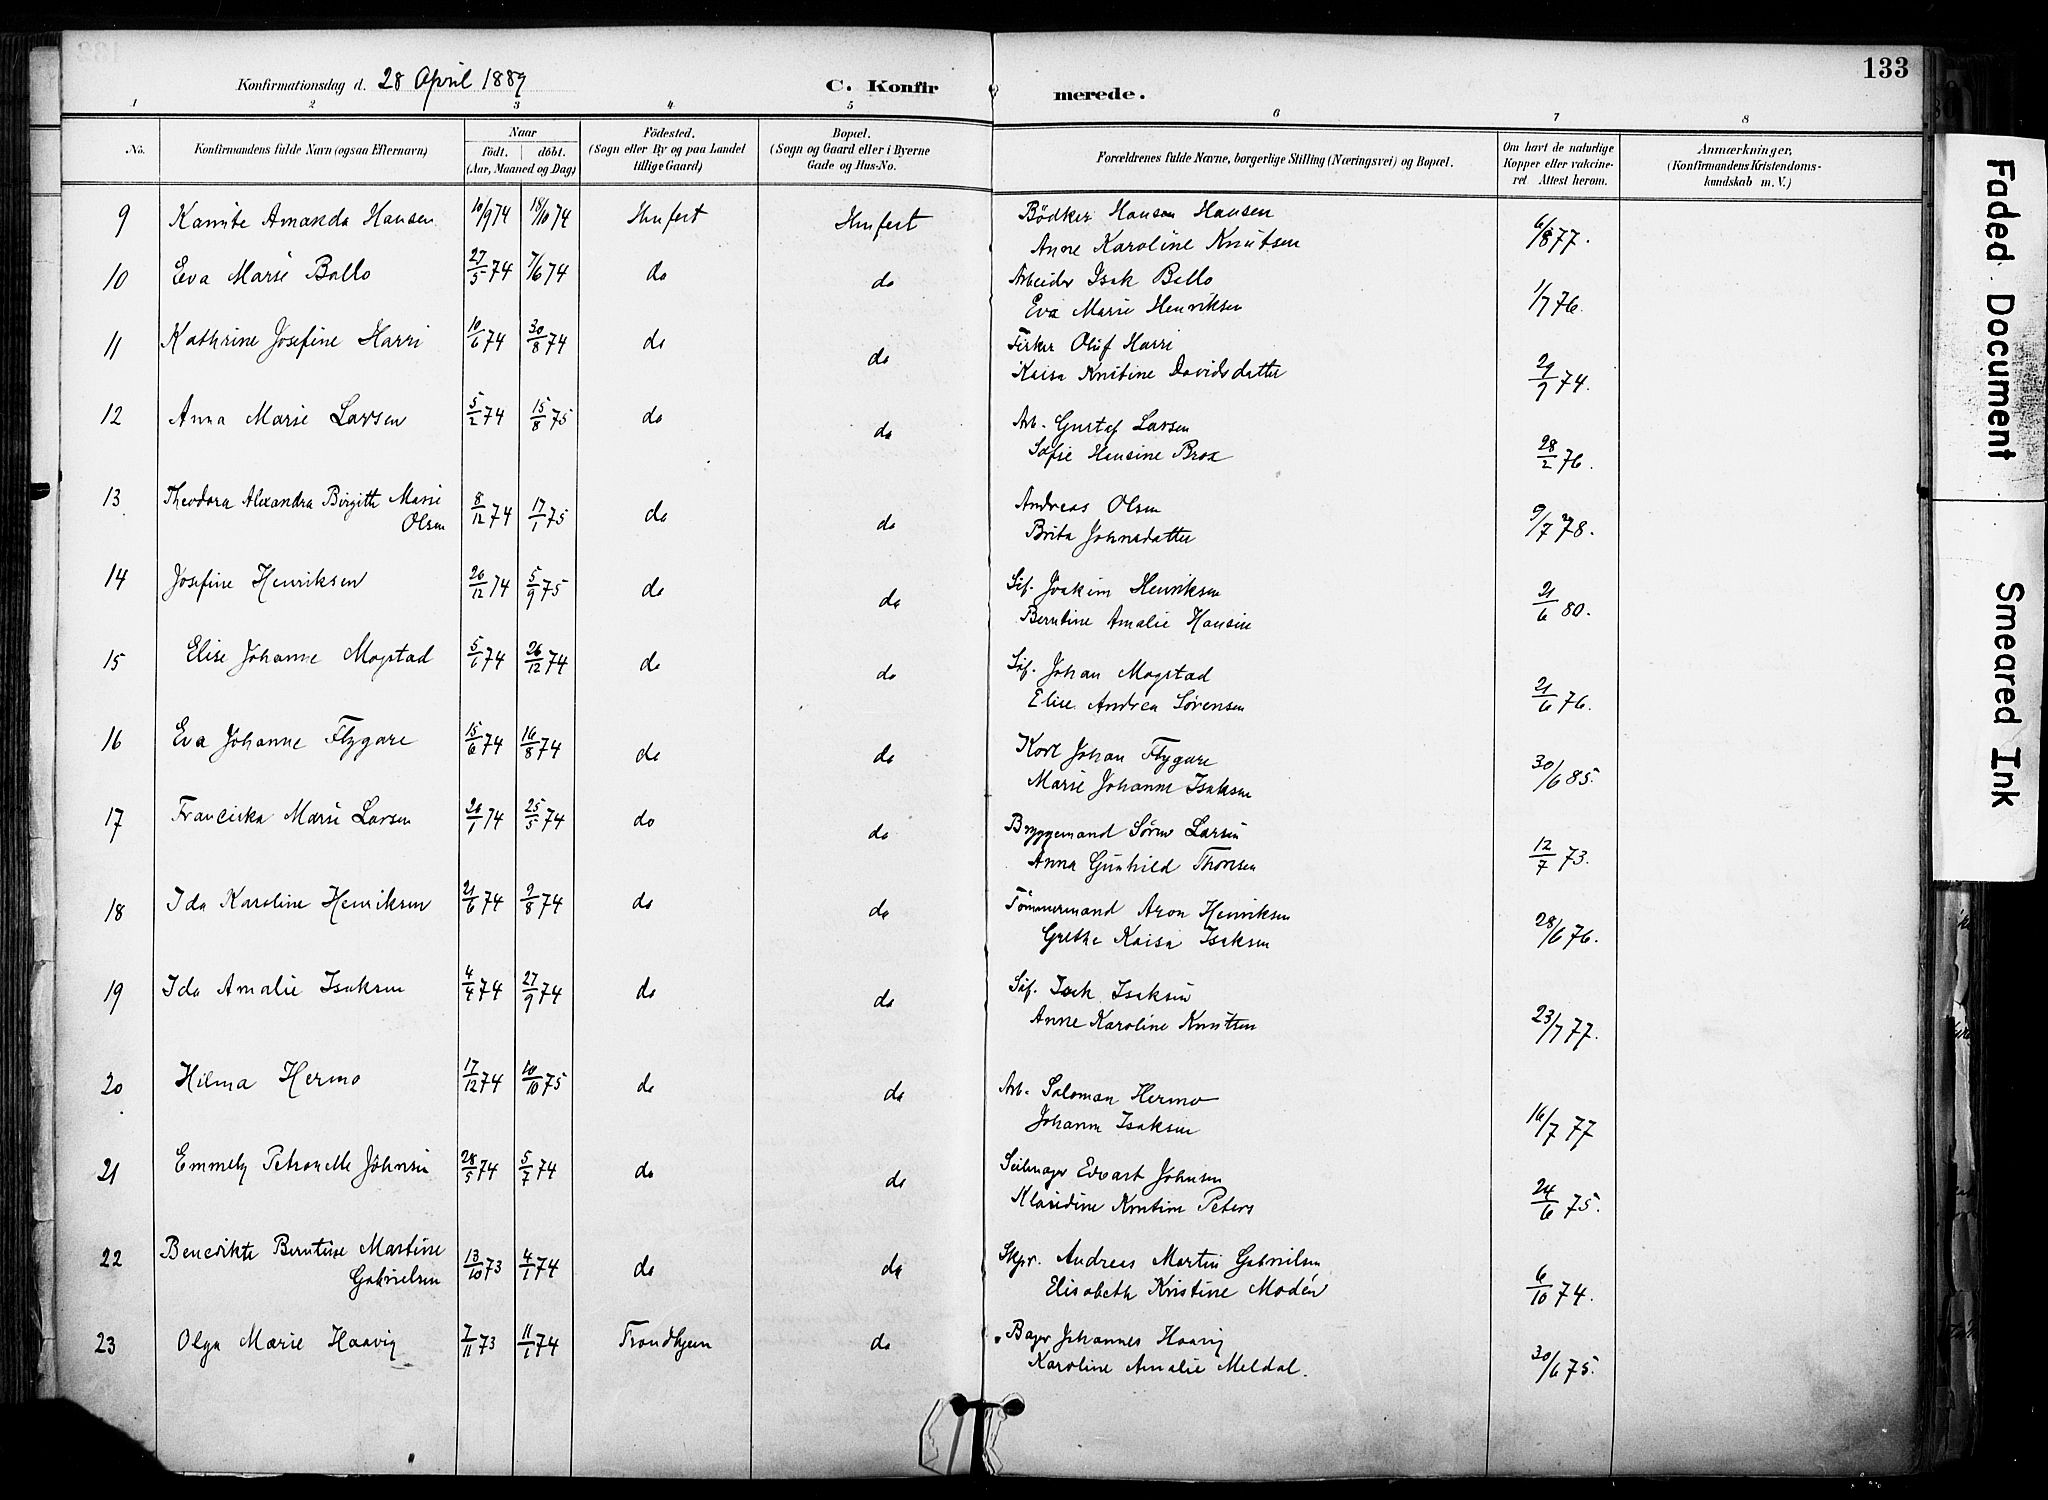 133
Konfirmationsdag d. 28 April 1889
C. Konfirmerede.
1 2 3 4 5 6 7 8
No. Konfirmandens fulde Navn (ogsaa Efternavn) Naar født. døbt. (Aar, Maaned og Dag) Födested. (Sogn eller By og paa Landet tillige Gaard) Bopæl. (Sogn og Gaard eller i Byerne Gade og Hus-No. Forældrenes fulde Navne, borgerlige Stilling (Næringsvei) og Bopæl. Om havt de naturlige Kopper eller vakcineret Attest herom. Anmærkninger, (Konfirmandens Kristendomskundskab m. V.)
9 Kamite Amanda Hansen 10/9 74 18/10 74 Hmfest Hmfest Bödker Hansen 6/8 77.
Anne Karoline Knutsen
10 Eva Marie Ballo 27/5 74 7/6 74 do do Arbeider Isak Ballo 1/7 76.
Eva Marie Henriksen
11 Kathrine Josefine Harri 10/6 74 30/8 74 do do Fisker Oluf Harri 29/9 74.
Kaisa Kristine Davidsdatter
12 Anna Marie Larsen 5/2 74 15/8 75 do do Arb. Gustaf Larsen 28/2 76.
Sofie Hansine Brox
13 Theodora Alexandra Birgitte Marie 8/12 74 17/1 75 do do Andreas Olsen 9/7 78.
Olsen Brita Johnsdatter
14 Josefine Henriksen 20/12 74 5/9 75 do do Söf. Joakim Henriksen 21/6 80.
Berntine Amalie Hansen
15 Elise Johanne Mogstad 5/6 74 26/12 74 do do Söf. Johan Mogstad 21/6 76.
Elise Andrea Sörensen
16 Eva Johanne Flygare 15/6 74 16/8 74 do do Karl Johan Flygare 30/6 85.
Marie Johanne Isaksen
17 Franciska Marie Larsen 20/1 74 25/5 74 do do Bryggemand Sören Larsen 12/7 73.
Anna Gunhild Thoresen
18 Ida Karoline Henriksen 21/6 74 2/8 74 do do Tömmermand Aron Henriksen 28/6 76.
Grethe Kaisa Isaksen
19 Ida Amalie Isaksen 4/4 74 27/9 74 do do Söf. Isak Isaksen 23/7 77.
Anne Karoline Knutsen
20 Hilma Hermo 17/12 74 10/10 75 do do Arb. Saloman Hermo 16/7 77
Johanne Isaksen
21 Emmely Petronelle Johnsen 28/5 74 5/7 74 do do Seilmager Edvart Johnsen 24/6 75.
Klaudine Kristine Peters
22 Benedikte Berntine Martine 13/10 73 4/1 74 do do Skpr. Andreas Martin Gabrielsen 6/10 74.
Gabrielsen Elisabeth Kristine Modén
23 Olga Marie Haavig 7/11 73 11/1 74 Trondhjem do Bager Johannes Haavig 30/6 75.
Karoline Amalie Meldal.
Faded Document
Smeared Ink